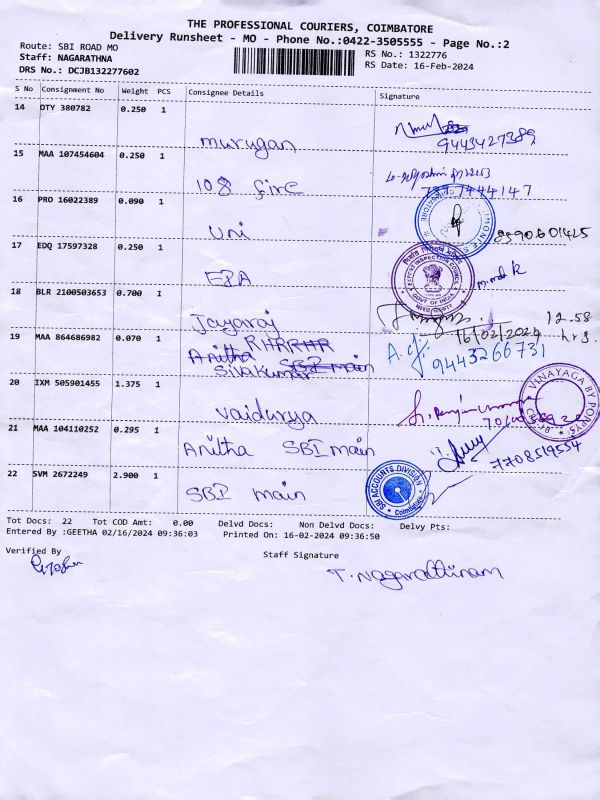 THE PROFESSIONAL COURIERS, COIMBATORE
Delivery Runsheet - MO - Phone No.:0422-3505555 - Page No.:2
Route: SBI ROAD MO
RS No.: 1322776
Staff: NAGARATHNA
RS Date: 16-Feb-2024
DRS No.: DCJB132277602
S No Consignment No Weight PCS Consignee Details Signature
14 DTY 380782 0.250 1
murugan
9443427389
15 MAA 107454604 0.250 1
108 fire
16 PRO 16022389 0.090 1
Uni
8590601425
17 EDQ 17597328 0.250 1
EIA
EXPORT INSPECTION COUNCIL
GOVT OF INDIA
18 BLR 2100503653 0.700 1
Jayaraj
12.58
16/02/2024 hrs.
19 MAA 864686982 0.070 1
Anitha SBI main
Sivakumar
9443266731
20 IXM 505901455 1.375 1
vaidurya
VANAYAGA BY POPYS
21 MAA 104110252 0.295 1
Anitha SBI main
7708519554
22 SVM 2672249 2.900 1
SBI main
SBI ACCOUNTS DIVISION
Coimbatore
Tot Docs: 22 Tot COD Amt: 0.00 Delvd Docs: Non Delvd Docs: Delvy Pts:
Entered By :GEETHA 02/16/2024 09:36:03 Printed On: 16-02-2024 09:36:50
Verified By
Staff Signature
T. Nagarathinam